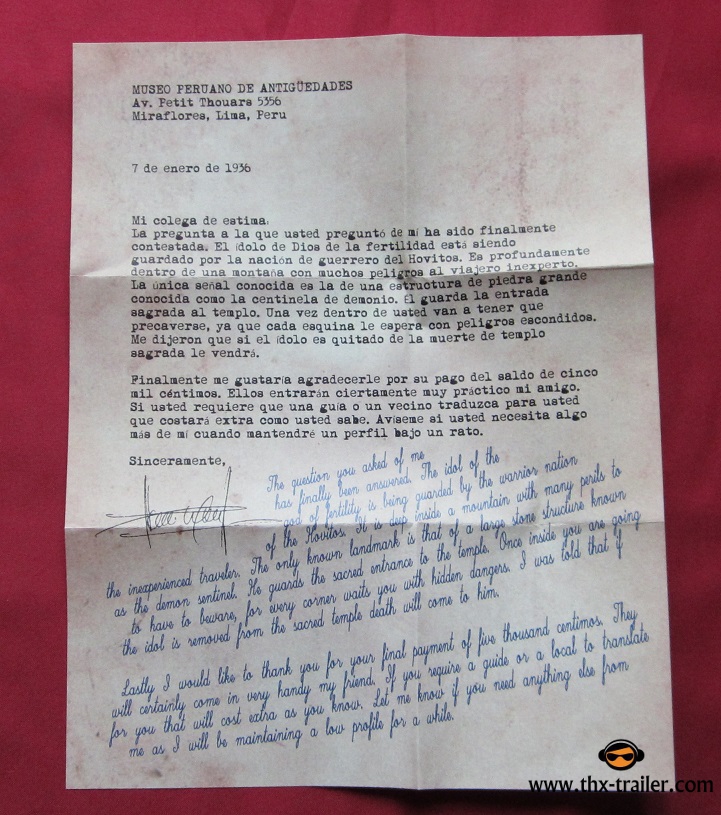 MUSEO PERUANO DE ANTIGÜEDADES
Av. Petit Thouars 5356
Miraflores, Lima, Peru
7 de enero de 1936
Mi colega de estima.
La pregunta a la que usted preguntó de mí ha sido finalmente
contestada. El ídolo de Dios de la fertilidad está siendo
guardado por la nación de guerrero del Hovitos. Es profundamente
dentro de una montaña con muchos peligros al viajero inexperto.
La única señal conocida es la de una estructura de piedra grande
conocida como la centinela de demonio. Él guarda la entrada
sagrada al templo. Una vez dentro de usted van a tener que
precaverse, ya que cada esquina le espera con peligros escondidos.
Me dijeron que si el ídolo es quitado de la muerte de templo
sagrada le vendrá.
Finalmente me gustaría agradecerle por su pago del saldo de cinco
mil céntimos. Ellos entrarán ciertamente muy práctico mi amigo.
Si usted requiere que una guía o un vecino traduzca para usted
que costará extra como usted sabe. Avíseme si usted necesita algo
más de mí cuando mantendré un perfil bajo un rato.
Sinceramente,
The question you asked of me
has finally been answered. The idol of the
god of fertility is being guarded by the warrior nation
of the Hovitos. It is deep inside a mountain with many perils to
the inexperienced traveler. The only known landmark is that of a large stone structure known
as the demon sentinel. He guards the sacred entrance to the temple. Once inside you are going
to have to beware, for every corner waits you with hidden dangers. I was told that if
the idol is removed from the sacred temple death will come to him.
Lastly I would like to thank you for your final payment of five thousand centimos. They
will certainly come in very handy my friend. If you require a guide or a local to translate
for you that will cost extra as you know. Let me know if you need anything else from
me as I will be maintaining a low profile for a while.
www.thx-trailer.com